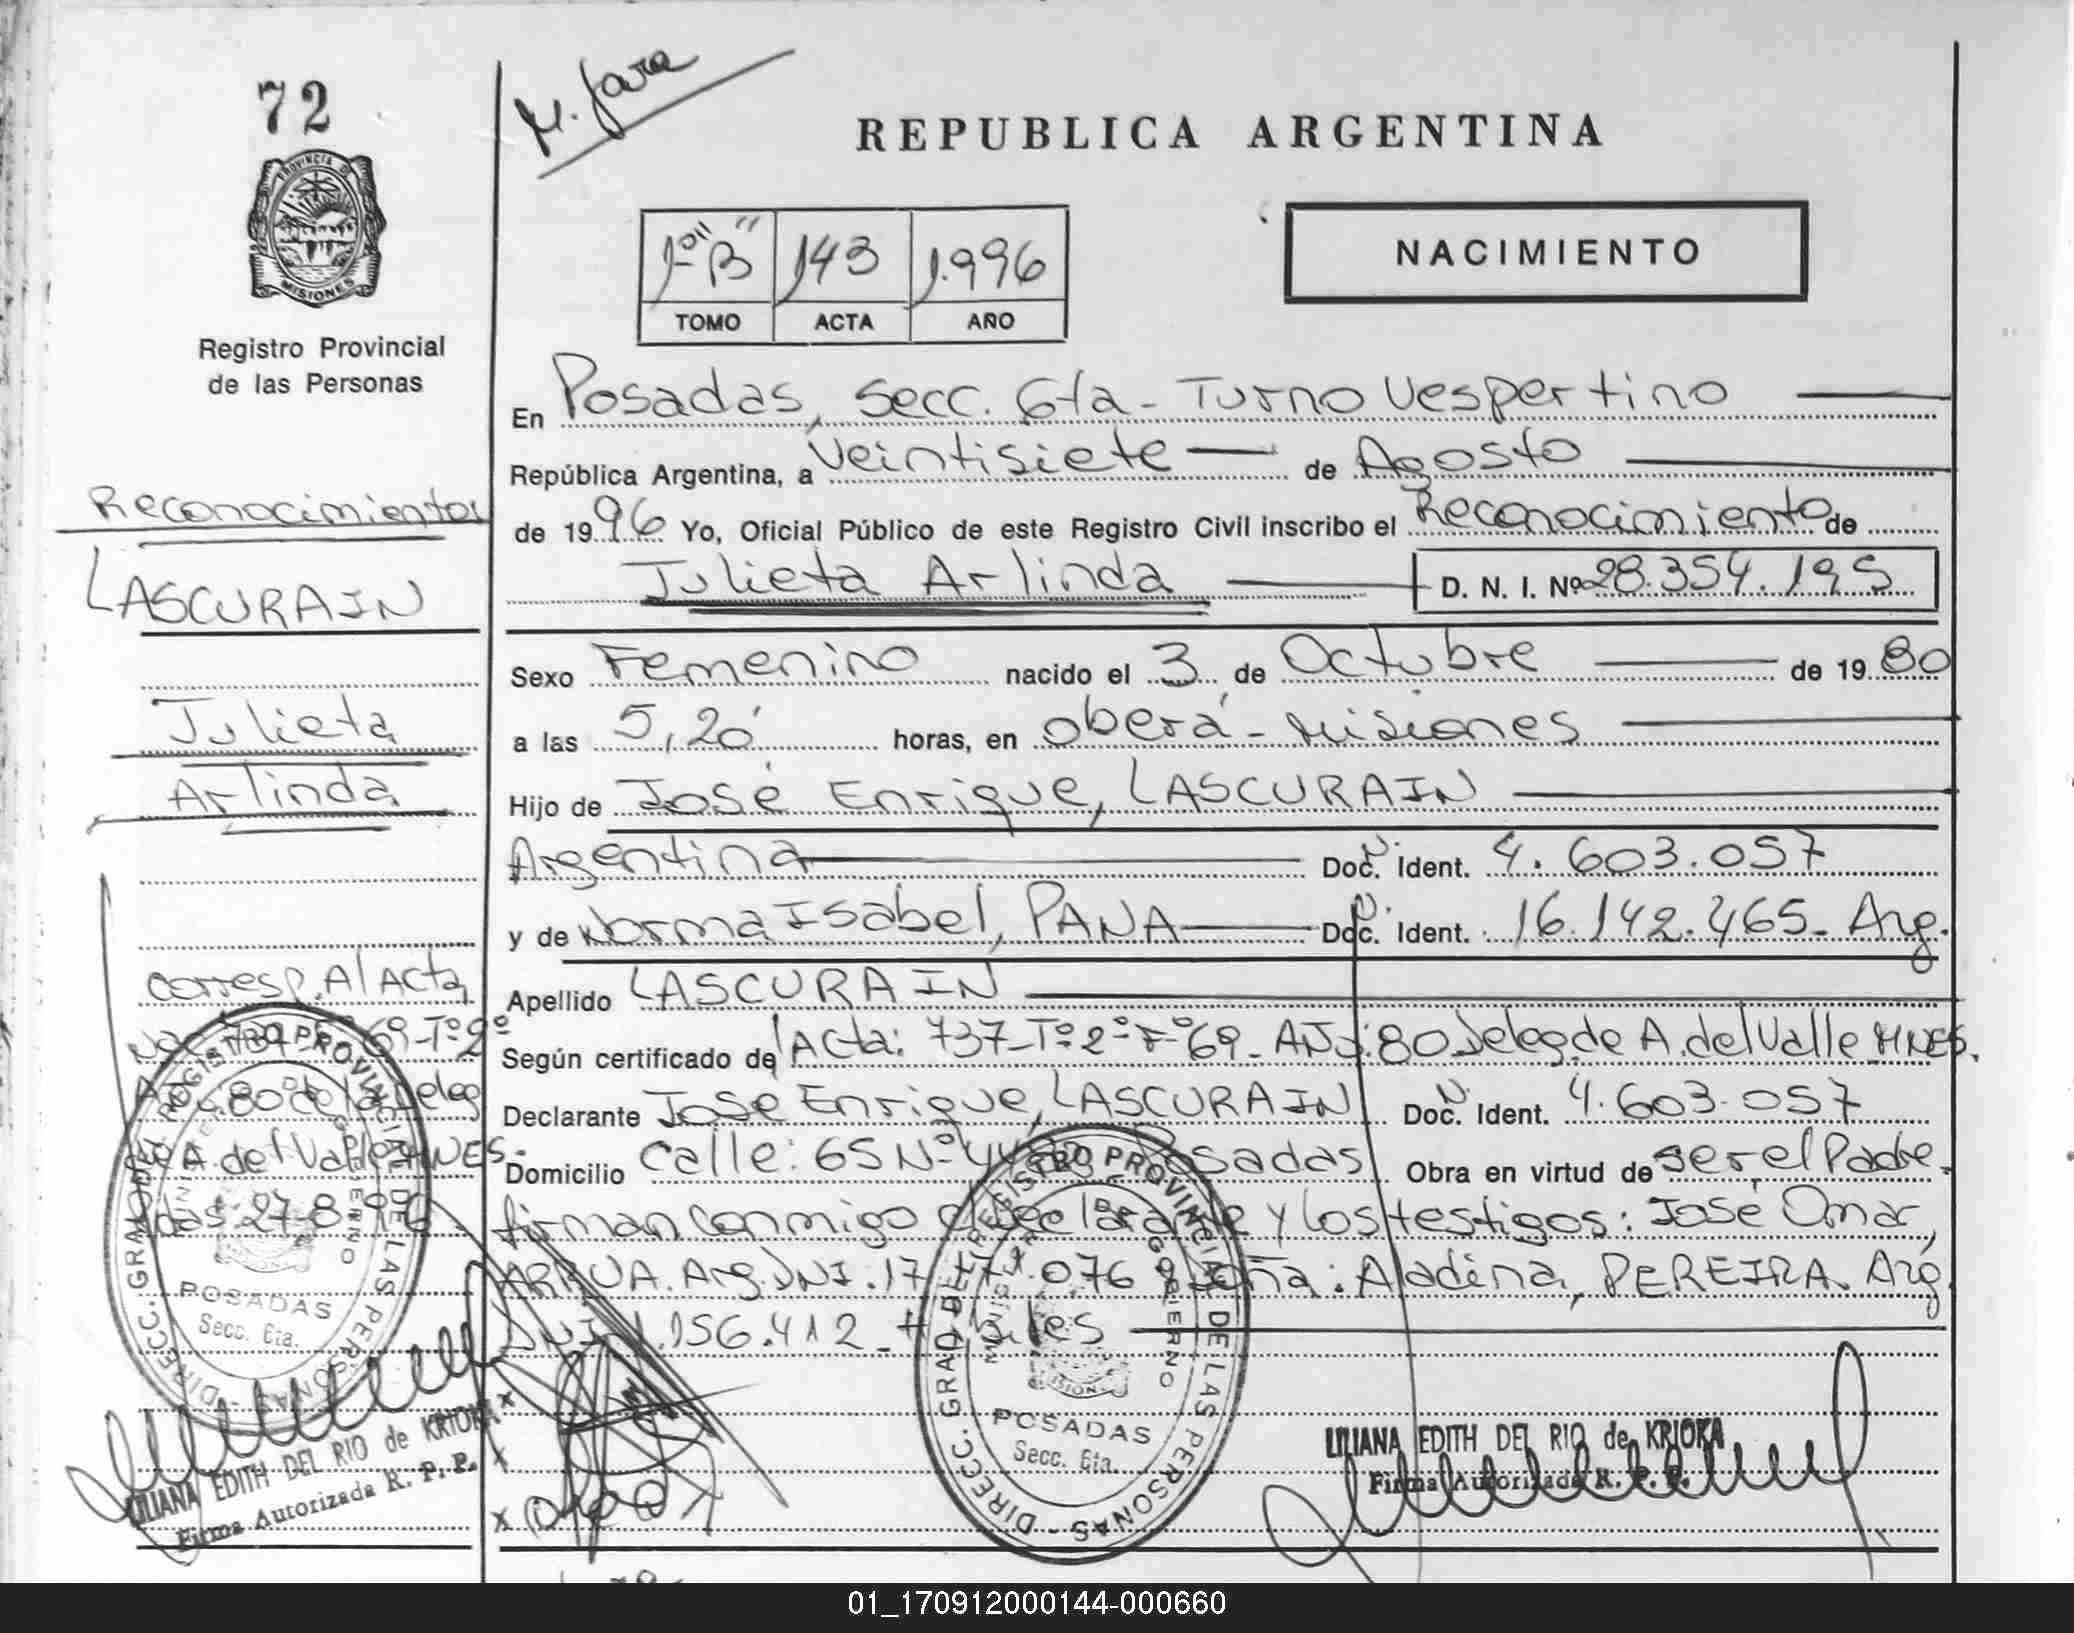 72
M. Jara
REPUBLICA ARGENTINA
PROVINCIA DE
MISIONES
Registro Provincial
de las Personas
1º "B" 143 1.996
TOMO ACTA AÑO
NACIMIENTO
En Posadas, Secc. 6ta - Turno Vespertino
República Argentina, a Veintisiete de Agosto
de 1996 Yo, Oficial Público de este Registro Civil inscribo el Reconocimiento de
Julieta Arlinda D. N. I. Nº 28.354.195
Sexo Femenino nacido el 3 de Octubre de 1980
a las 5,20 horas, en Oberá - Misiones
Hijo de José Enrique, LASCURAIN
Argentina Doc. Ident. 4.603.057
y de Norma Isabel, PANA Doc. Ident. 16.142.465- Arg.
Apellido LASCURAIN
Según certificado del Acta: 737-Tº-2º-Fº69- Año:80 Deleg. de A. del Valle MNES.
Declarante José Enrique, LASCURAIN Doc. Ident. 4.603.057
Domicilio Calle: 65 Nº Posadas Obra en virtud de ser el Padre.
firman conmigo el declarante y los testigos: José Omar,
ARRUA. Arg. DNI. 17 .076 y Doña: Aladina, PEREIRA. Arg
DNI .156.412 - Hábiles
Reconocimiento
LASCURAIN
Julieta
Arlinda
Corresp. Al Acta
Nº 69-Tº-2º
80 de la Deleg
de A. del Valle MNES.
Pdas. 27-8-96
DIRECC. GRAL. DEL REGISTRO PROVINCIAL DE LAS PERSONAS
MINISTERIO DE GOBIERNO
POSADAS
Secc. 6ta.
LILIANA EDITH DEL RIO de KRIOKA
Firma Autorizada R. P. P.
DIRECC. GRAL DEL REGISTRO PROVINCIAL DE LAS PERSONAS
MINISTERIO DE GOBIERNO
MISIONES
POSADAS
Secc. 6ta.
LILIANA EDITH DEL RIO de KRIOKA
Firma Autorizada R. P. P.
01_170912000144-000660